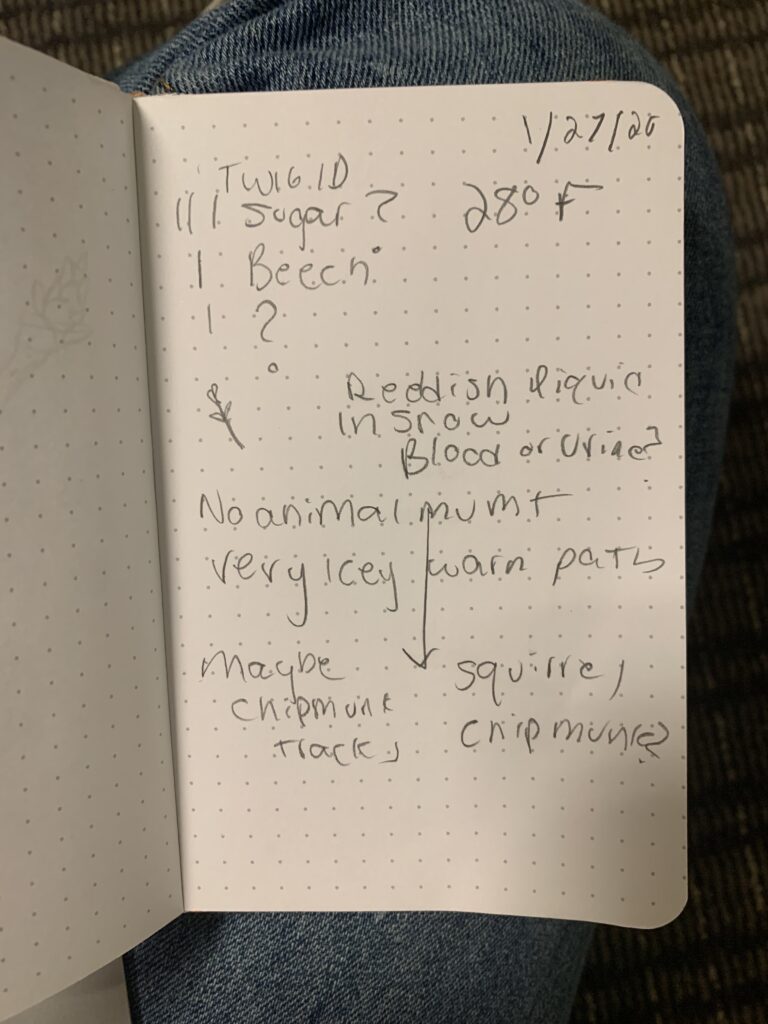 1/27/20
TWIG ID
||| Sugar? 28° F
| Beech
| ?
Reddish liquid
in snow
Blood or Urine?
No animal mvmt
very icey warn path
Maybe squirrel
chipmunk chipmunk?
tracks